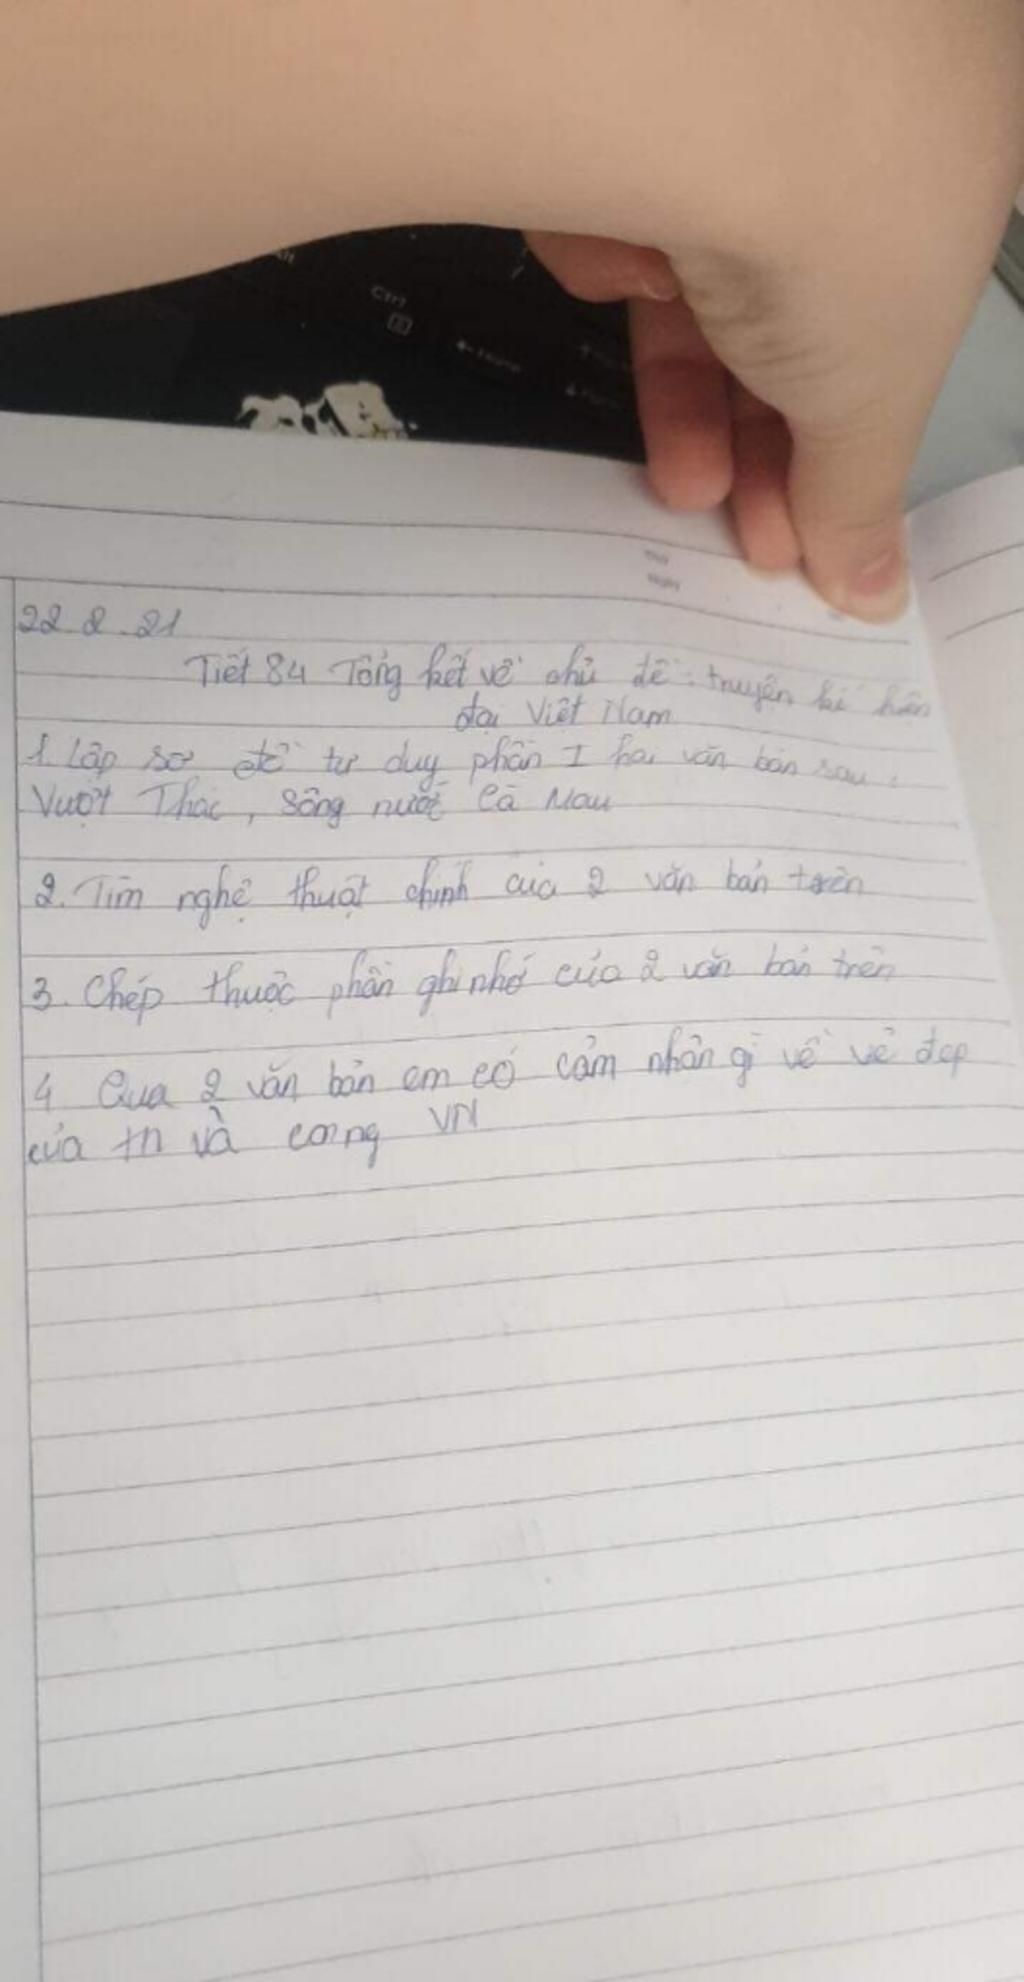 Ctrl
Thứ
Ngày
22.2.21
Tiết 84 Tổng kết về chủ đề: truyện kí hiện
đại Việt Nam
1. Lập sơ đồ tư duy phần I hai văn bản sau:
Vượt Thác, Sông nước Cà Mau
2. Tìm nghệ thuật chính của 2 văn bản trên
3. Chép thuộc phần ghi nhớ của 2 văn bản trên
4 Qua 2 văn bản em có cảm nhận gì về vẻ đẹp
của tn và con ng VN